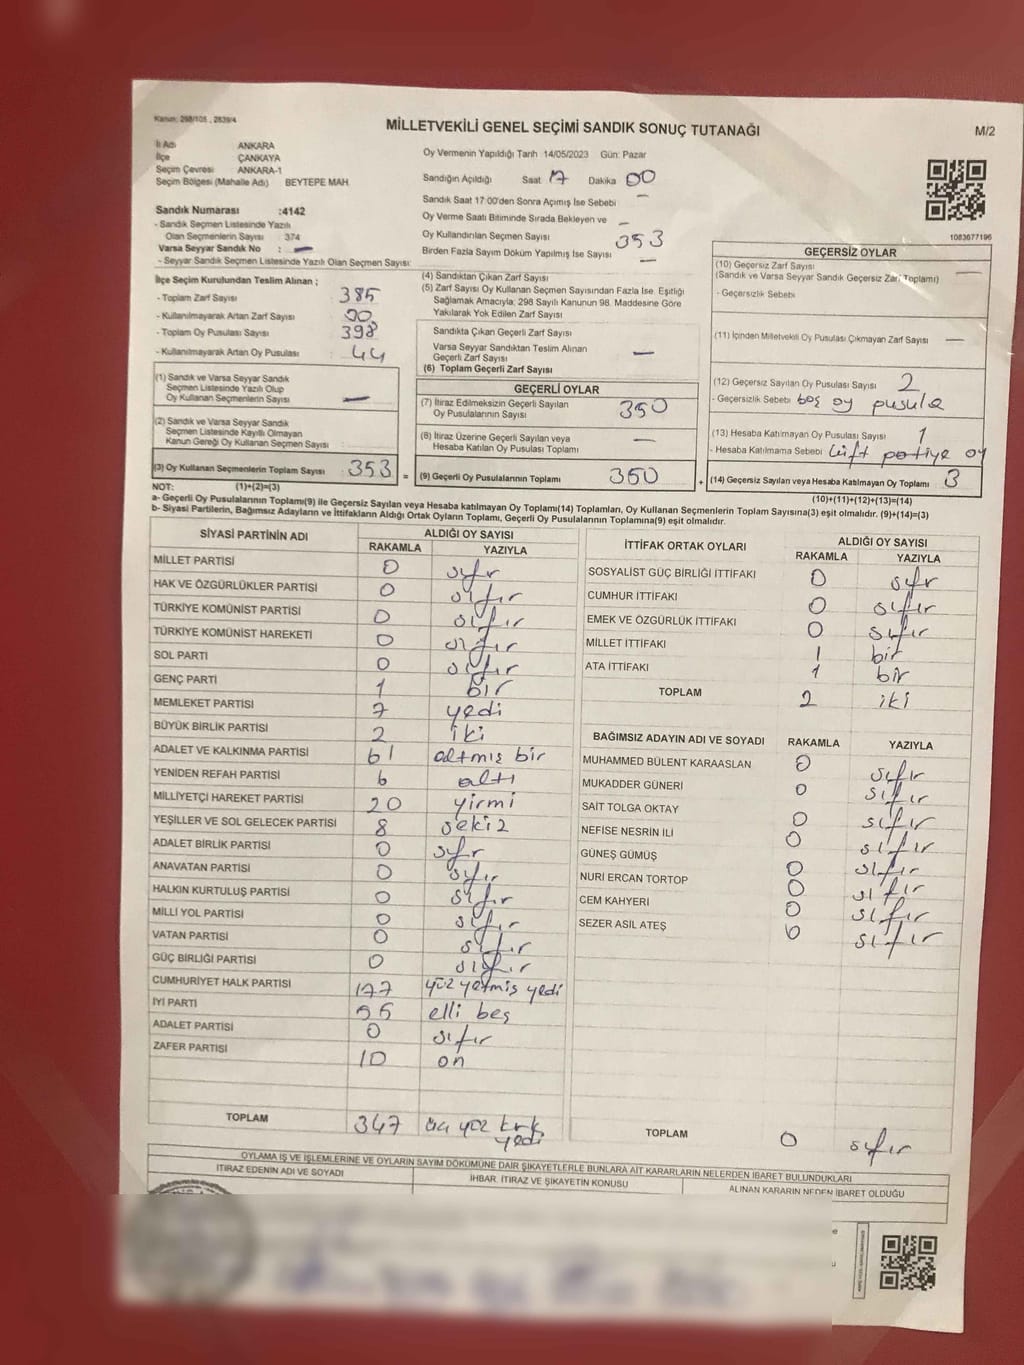 Kanun: 298/105 , 2839/4
MİLLETVEKİLİ GENEL SEÇİMİ SANDIK SONUÇ TUTANAĞI
M/2
İl Adı ANKARA
İlçe ÇANKAYA
Seçim Çevresi ANKARA-1
Seçim Bölgesi (Mahalle Adı) BEYTEPE MAH
Sandık Numarası :4142
- Sandık Seçmen Listesinde Yazılı
Olan Seçmenlerin Sayısı : 374
Varsa Seyyar Sandık No : —
- Seyyar Sandık Seçmen Listesinde Yazılı Olan Seçmen Sayısı:
Oy Vermenin Yapıldığı Tarih 14/05/2023 Gün: Pazar
Sandığın Açıldığı Saat 17 Dakika 00
Sandık Saat 17:00'den Sonra Açımış İse Sebebi —
Oy Verme Saati Bitiminde Sırada Bekleyen ve —
Oy Kullandırılan Seçmen Sayısı 353
Birden Fazla Sayım Döküm Yapılmış İse Sayısı —
1083677196
İlçe Seçim Kurulundan Teslim Alınan ;
- Toplam Zarf Sayısı 385
- Kullanılmayarak Artan Zarf Sayısı
- Toplam Oy Pusulası Sayısı 398
- Kullanılmayarak Artan Oy Pusulası 44
(1) Sandık ve Varsa Seyyar Sandık
Seçmen Listesinde Yazılı Olup
Oy Kullanan Seçmenlerin Sayısı —
(2) Sandık ve Varsa Seyyar Sandık
Seçmen Listesinde Kayıtlı Olmayan
Kanun Gereği Oy Kullanan Seçmen Sayısı
(3) Oy Kullanan Seçmenlerin Toplam Sayısı : 353 =
(4) Sandıktan Çıkan Zarf Sayısı
(5) Zarf Sayısı Oy Kullanan Seçmen Sayısından Fazla İse. Eşitliği
Sağlamak Amacıyla; 298 Sayılı Kanunun 98. Maddesine Göre
Yakılarak Yok Edilen Zarf Sayısı
Sandıkta Çıkan Geçerli Zarf Sayısı
Varsa Seyyar Sandıktan Teslim Alınan
Geçerli Zarf Sayısı —
(6) Toplam Geçerli Zarf Sayısı
GEÇERLİ OYLAR
(7) İtiraz Edilmeksizin Geçerli Sayılan
Oy Pusulalarının Sayısı 350
(8) İtiraz Üzerine Geçerli Sayılan veya
Hesaba Katılan Oy Pusulası Toplamı —
(9) Geçerli Oy Pusulalarının Toplamı 350 +
GEÇERSİZ OYLAR
(10) Geçersiz Zarf Sayısı —
(Sandık ve Varsa Seyyar Sandık Geçersiz Zarf Toplamı)
- Geçersizlik Sebebi
(11) İçinden Milletvekili Oy Pusulası Çıkmayan Zarf Sayısı —
(12) Geçersiz Sayılan Oy Pusulası Sayısı 2
- Geçersizlik Sebebi boş oy pusula
(13) Hesaba Katılmayan Oy Pusulası Sayısı 1
- Hesaba Katılmama Sebebi çift partiye oy
(14) Geçersiz Sayılan veya Hesaba Katılmayan Oy Toplamı 3
NOT: (1)+(2)=(3)
(10)+(11)+(12)+(13)=(14)
a- Geçerli Oy Pusulalarının Toplamı(9) ile Geçersiz Sayılan veya Hesaba katılmayan Oy Toplamı(14) Toplamları, Oy Kullanan Seçmenlerin Toplam Sayısına(3) eşit olmalıdır. (9)+(14)=(3)
b- Siyasi Partilerin, Bağımsız Adayların ve İttifakların Aldığı Ortak Oyların Toplamı, Geçerli Oy Pusulalarının Toplamına(9) eşit olmalıdır.
SİYASİ PARTİNİN ADI ALDIĞI OY SAYISI
RAKAMLA YAZIYLA
MİLLET PARTİSİ 0 sıfır
HAK VE ÖZGÜRLÜKLER PARTİSİ 0 sıfır
TÜRKİYE KOMÜNİST PARTİSİ 0 sıfır
TÜRKİYE KOMÜNİST HAREKETİ 0 sıfır
SOL PARTİ 0 sıfır
GENÇ PARTİ 1 bir
MEMLEKET PARTİSİ 7 yedi
BÜYÜK BİRLİK PARTİSİ 2 iki
ADALET VE KALKINMA PARTİSİ 61 altmış bir
YENİDEN REFAH PARTİSİ 6 altı
MİLLİYETÇİ HAREKET PARTİSİ 20 yirmi
YEŞİLLER VE SOL GELECEK PARTİSİ 8 sekiz
ADALET BİRLİK PARTİSİ 0 sıfır
ANAVATAN PARTİSİ 0 sıfır
HALKIN KURTULUŞ PARTİSİ 0 sıfır
MİLLİ YOL PARTİSİ 0 sıfır
VATAN PARTİSİ 0 sıfır
GÜÇ BİRLİĞİ PARTİSİ 0 sıfır
CUMHURİYET HALK PARTİSİ 177 yüz yetmiş yedi
İYİ PARTİ 55 elli beş
ADALET PARTİSİ 0 sıfır
ZAFER PARTİSİ 10 on
TOPLAM 347 üç yüz kırk yedi
İTTİFAK ORTAK OYLARI ALDIĞI OY SAYISI
RAKAMLA YAZIYLA
SOSYALİST GÜÇ BİRLİĞİ İTTİFAKI 0 sıfır
CUMHUR İTTİFAKI 0 sıfır
EMEK VE ÖZGÜRLÜK İTTİFAKI 0 sıfır
MİLLET İTTİFAKI 1 bir
ATA İTTİFAKI 1 bir
TOPLAM 2 iki
BAĞIMSIZ ADAYIN ADI VE SOYADI RAKAMLA YAZIYLA
MUHAMMED BÜLENT KARAASLAN 0 sıfır
MUKADDER GÜNERİ 0 sıfır
SAİT TOLGA OKTAY 0 sıfır
NEFİSE NESRİN İLİ 0 sıfır
GÜNEŞ GÜMÜŞ 0 sıfır
NURİ ERCAN TORTOP 0 sıfır
CEM KAHYERİ 0 sıfır
SEZER ASİL ATEŞ 0 sıfır
TOPLAM 0 sıfır
OYLAMA İŞ VE İŞLEMLERİNE VE OYLARIN SAYIM DÖKÜMÜNE DAİR ŞİKAYETLERLE BUNLARA AİT KARARLARIN NELERDEN İBARET BULUNDUKLARI
İTİRAZ EDENİN ADI VE SOYADI İHBAR, İTİRAZ VE ŞİKAYETİN KONUSU ALINAN KARARIN NEDEN İBARET OLDUĞU